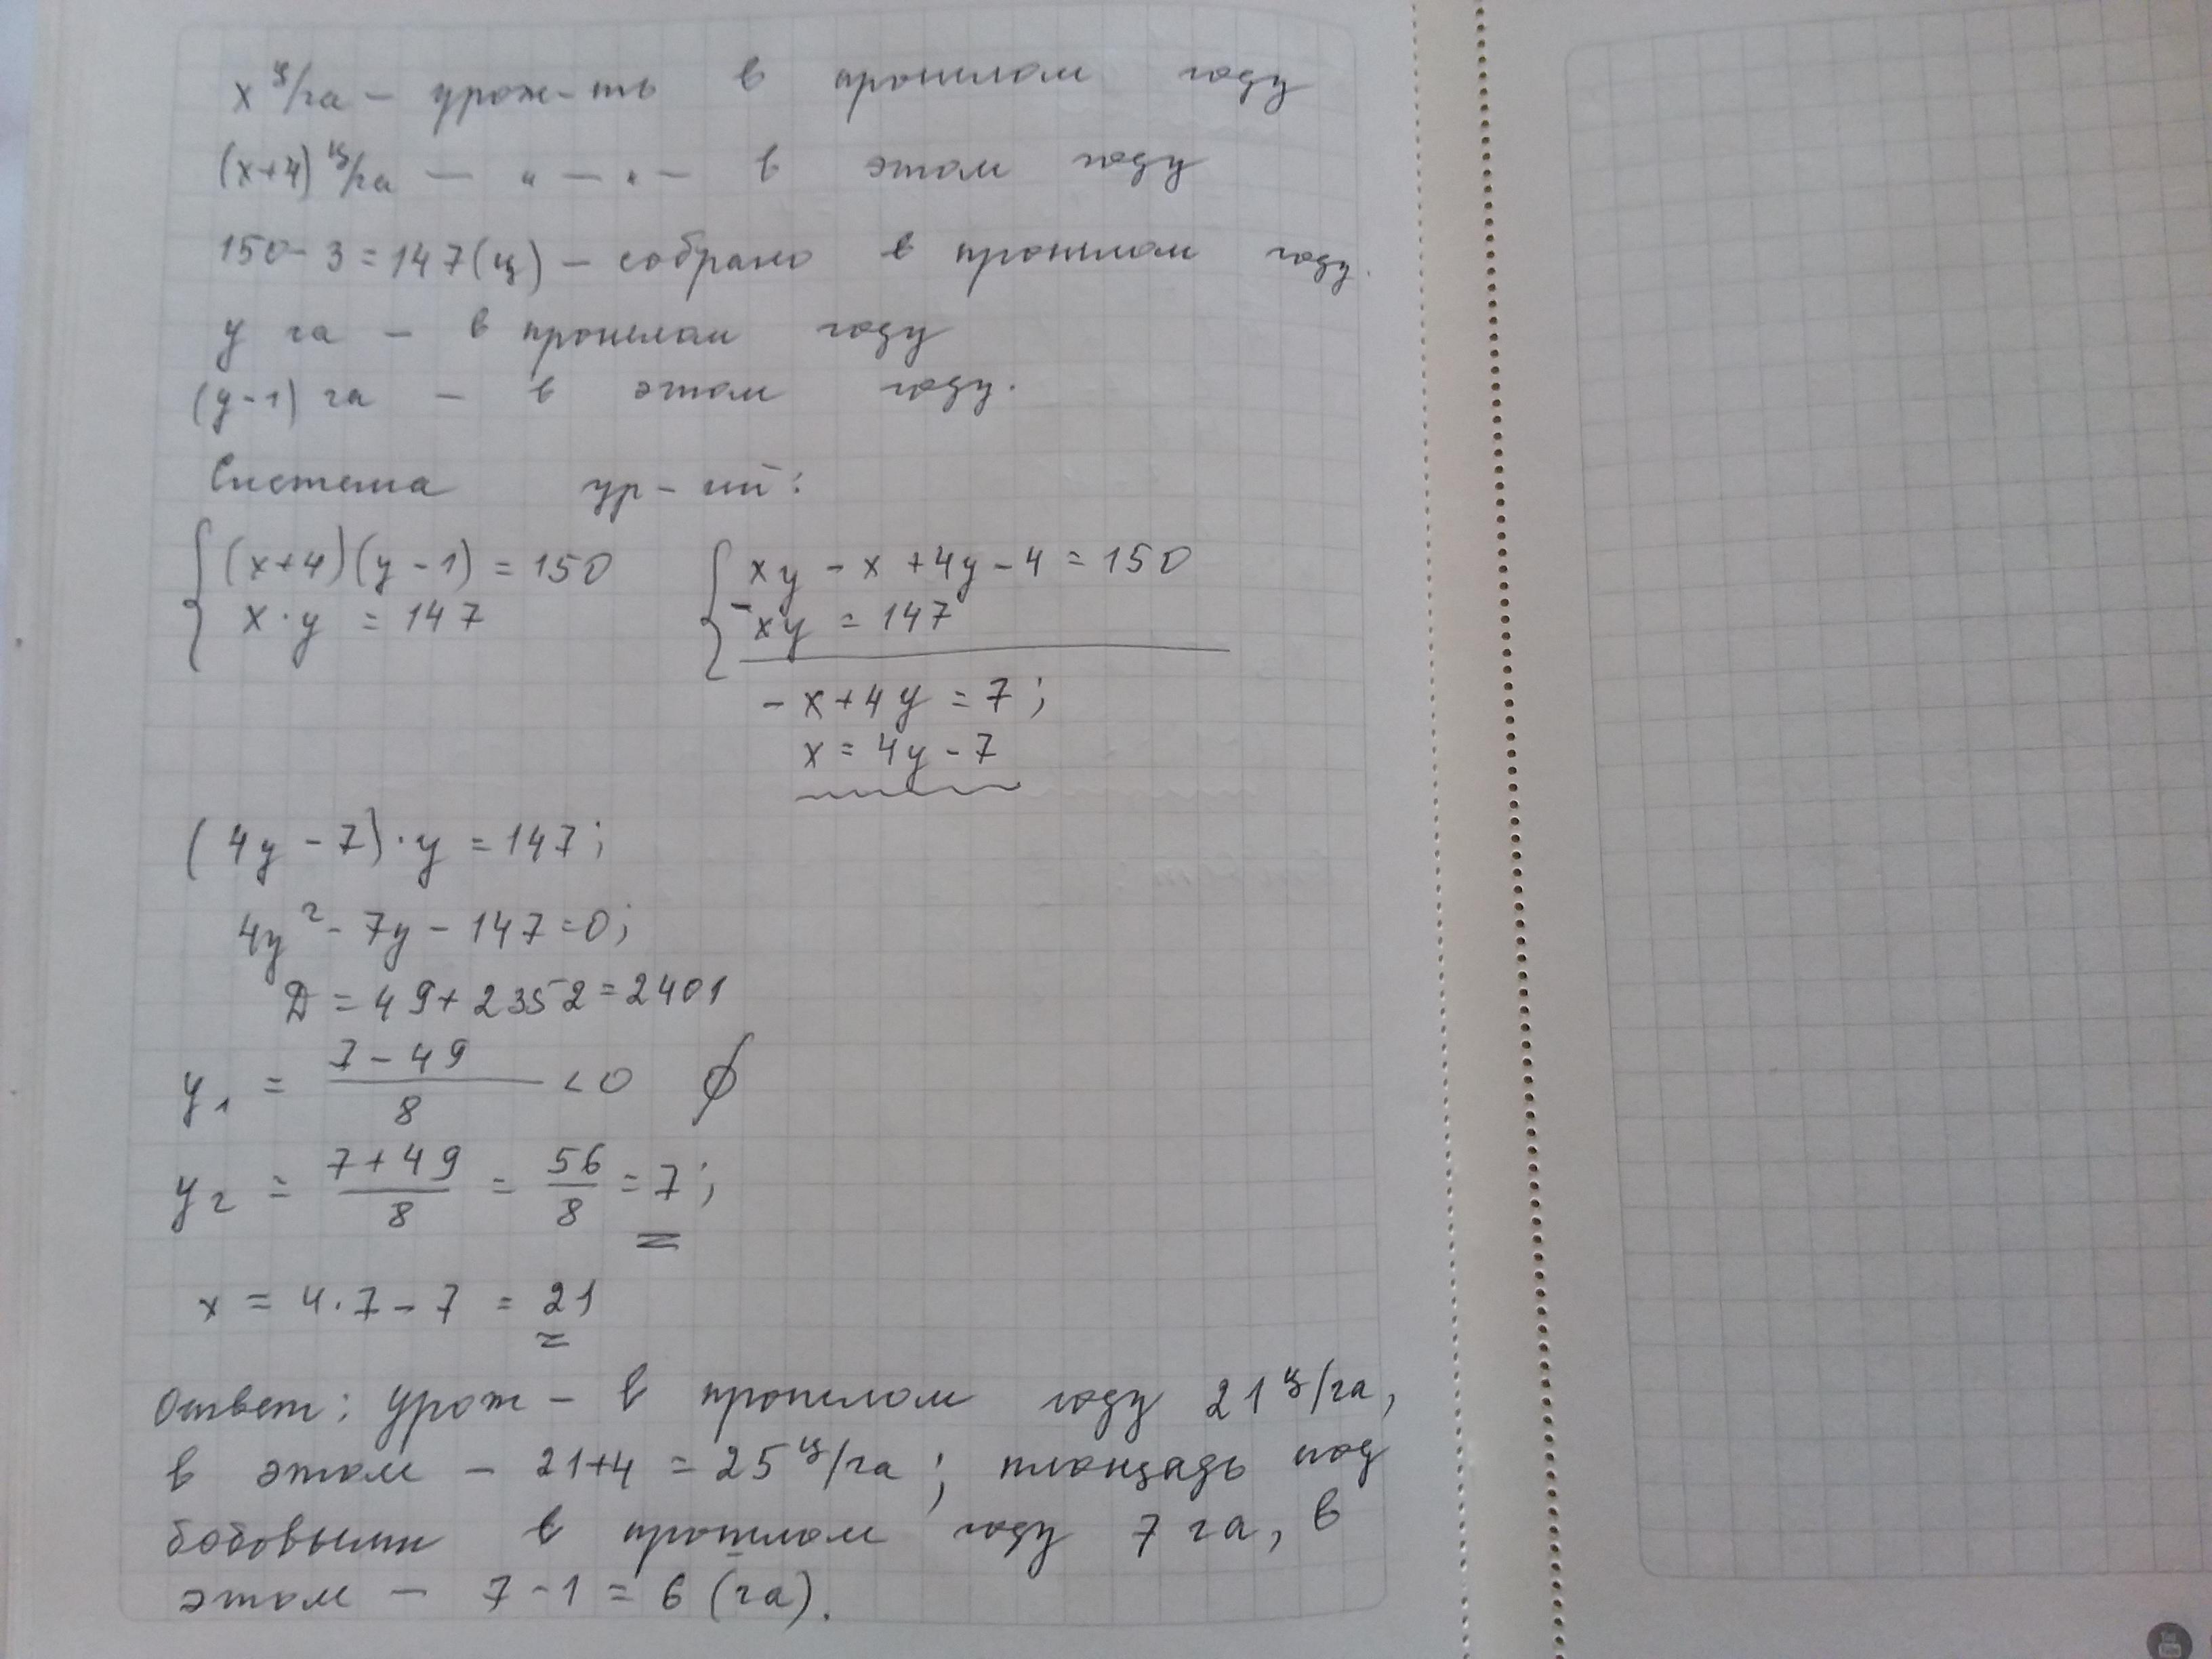 x ц/га – урож-ть в прошлом году
(x+4) ц/га — " — " — в этом году
150-3=147(ц) – собрано в прошлом году.
y га – в прошлом году
(y-1) га – в этом году.
Система ур-ий:
{ (x+4)(y-1)=150
x·y = 147
{ xy - x + 4y - 4 = 150
- xy = 147
-x+4y = 7;
x = 4y - 7
(4y-7)·y = 147;
4y² - 7y - 147 = 0;
Д = 49+2352=2401
y₁ = (7-49)/8 <0 ∅
y₂ = (7+49)/8 = 56/8 = 7;
x = 4·7-7 = 21
Ответ: урож – в прошлом году 21 ц/га,
в этом – 21+4 = 25 ц/га; площадь под
бобовыми в прошлом году 7 га, в
этом – 7-1 = 6 (га).